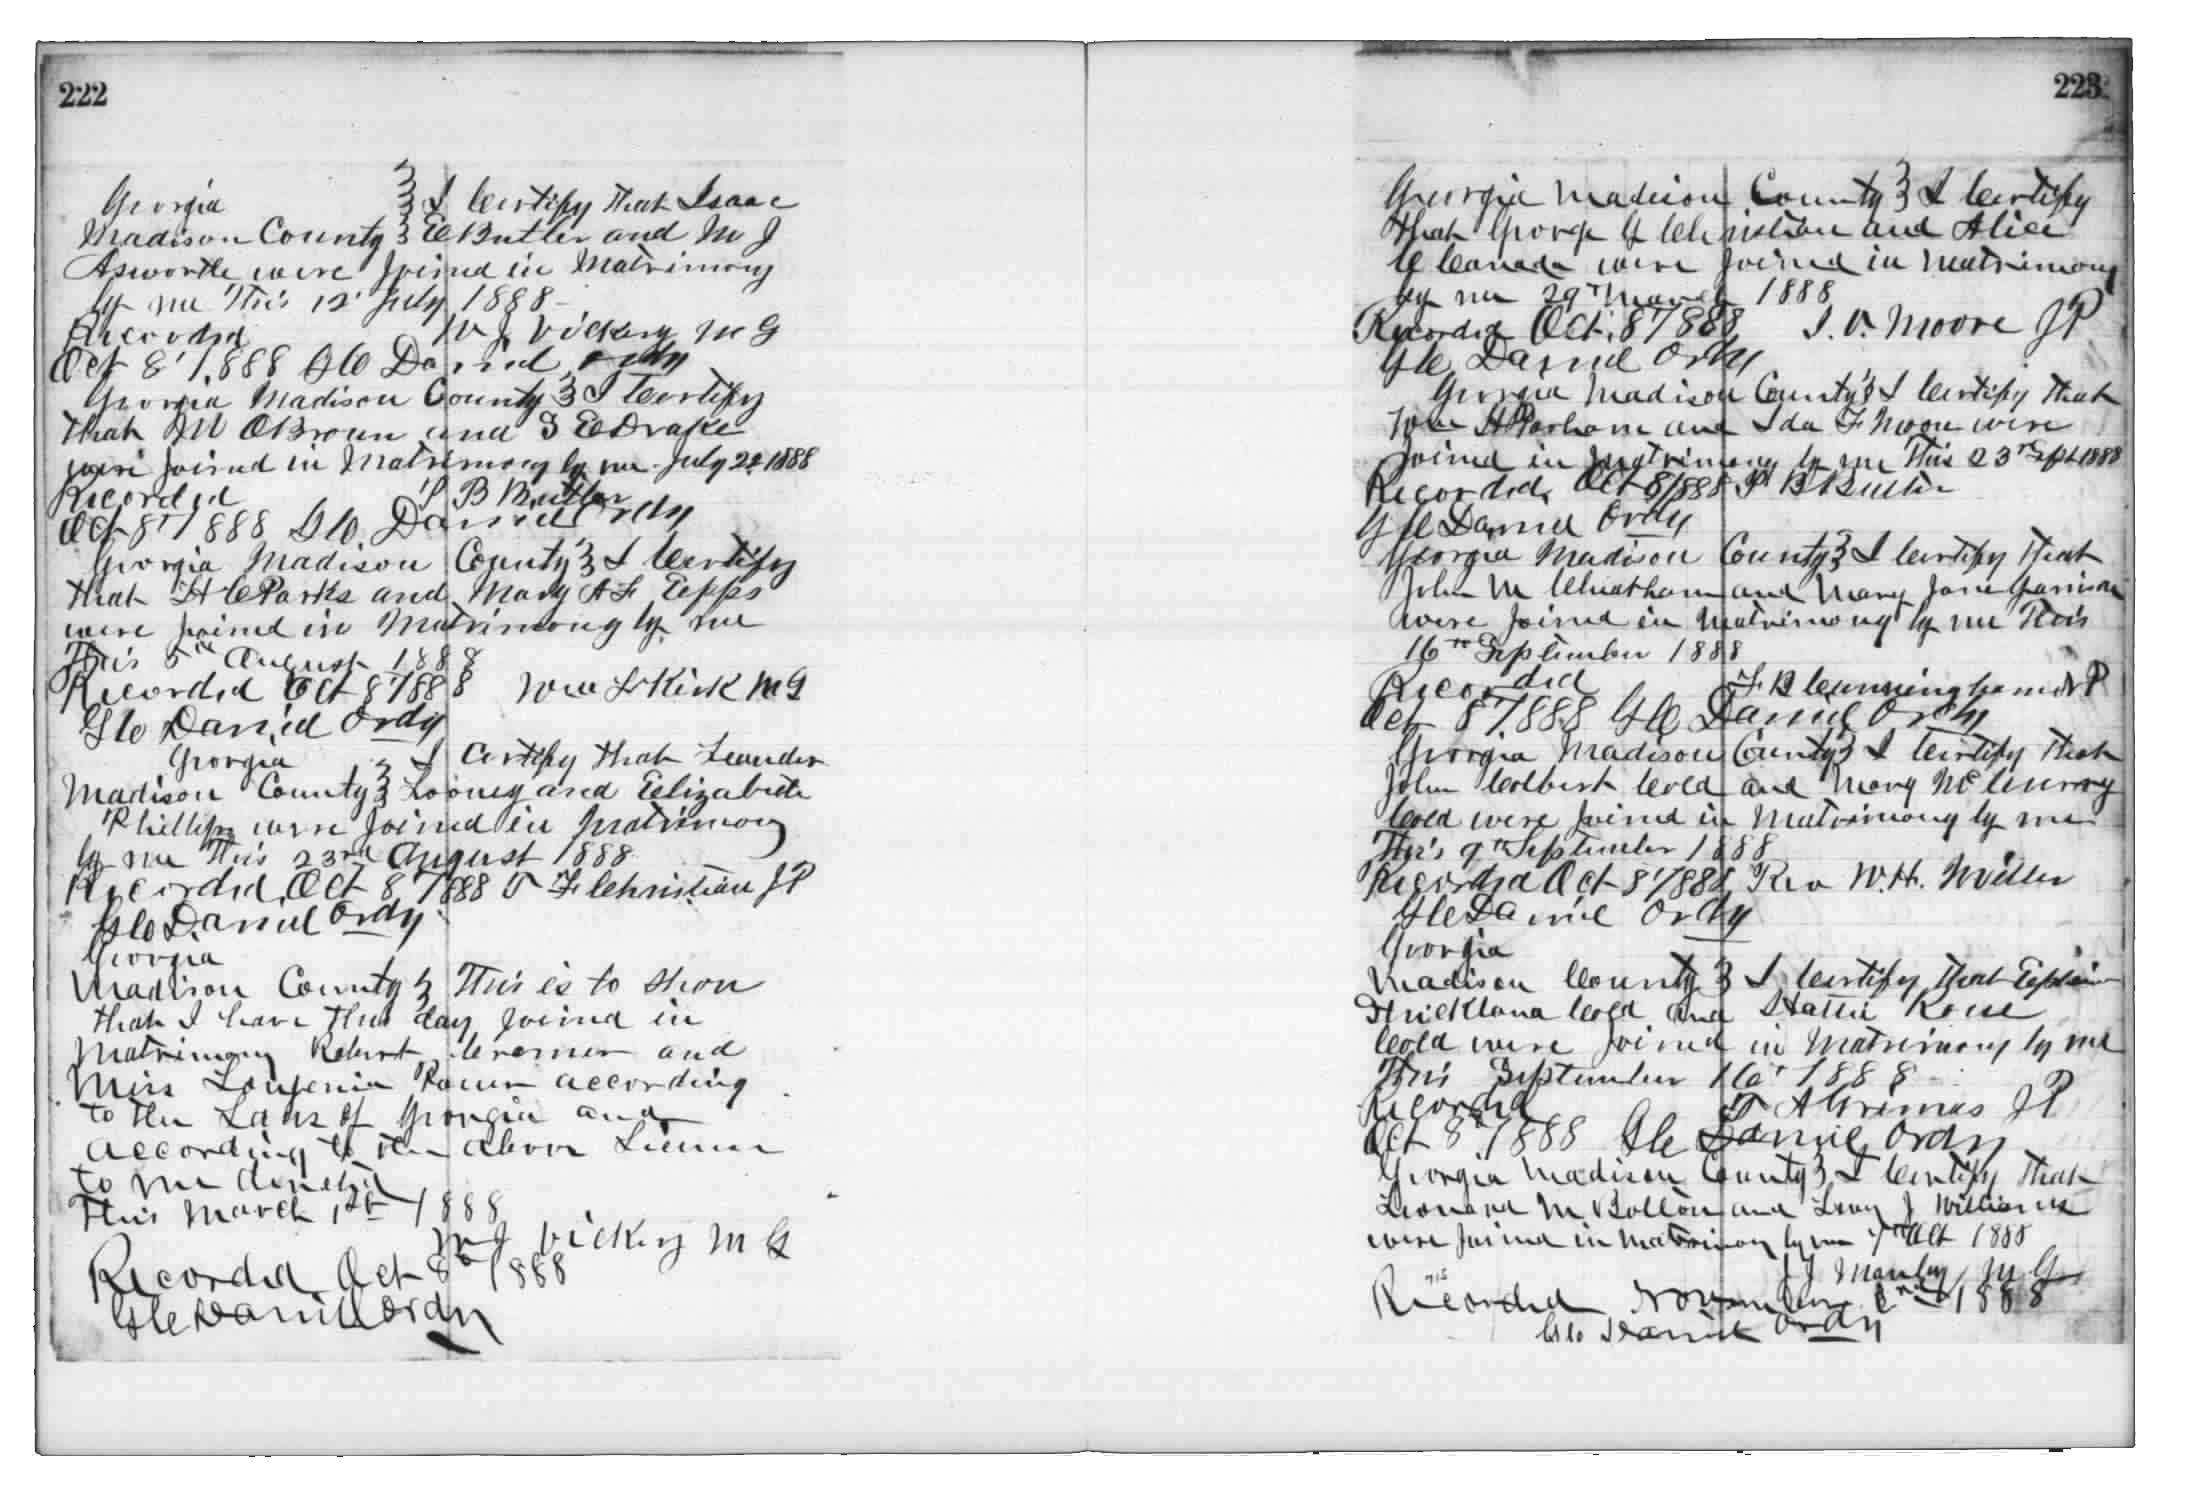 222
Georgia } I Certify that Isaac
Madison County } E Butler and M J
Asworth were Joined in Matrimony
by me This 12' July 1888
Recorded W J Vickery M G
Oct 8' 1888 G C Daniel Ordy
Georgia Madison County } I Certify
that M O Brown and S E Drake
were Joined in Matrimony by me July 22 1888
Recorded P B Butler
Oct 8' 1888 G C Daniel Ordy
Georgia Madison County } I Certify
that H C Parks and Mary A F Epps
were Joined in Matrimony by me
This 5th August 1888
Recorded Oct 8' 1888 Wm F Kirk M G
G C Daniel Ordy
Georgia I Certify that Leander
Madison County } Looney and Elizabeth
Phillips were Joined in Matrimony
by me This 23rd August 1888
Recorded Oct 8' 1888 T F Christian J P
G C Daniel Ordy
Georgia
Madison County } This is to Show
that I have this day Joined in
Matrimony Robert and
Miss according
to the Laws of Georgia and
according to the above License
to me directed
This March 1st 1888
W J Vickery M G
Recorded Oct 8th 1888
G C Daniel Ordy
223
Georgia Madison County } I Certify
that George G Christian and Alice
C Canada were Joined in Matrimony
by me 29th March 1888
Recorded Oct 8' 1888 S. V. Moore J P
G C Daniel Ordy
Georgia Madison County } I Certify that
Wm H Parham and Ida F Moon were
Joined in Matrimony by me This 23rd Sept 1888
Recorded Oct 8' 1888 P B Butler
G C Daniel Ordy
Georgia Madison County } I Certify that
John M Cheatham and Mary Jane Garrison
were Joined in Matrimony by me This
16th September 1888
Recorded F B Cunningham J P
Oct 8' 1888 G C Daniel Ordy
Georgia Madison County } I Certify that
John Colbert Cold and Mary McCurry
Cold were Joined in Matrimony by me
This 9th September 1888
Recorded Oct 8' 1888 Rev W. H. Miller
G C Daniel Ordy
Georgia
Madison County } I Certify that
Strickland Cold and Hattie Rouse
Cold were Joined in Matrimony by me
This September 16' 1888
Recorded T A Grimes J P
Oct 8th 1888 G C Daniel Ordy
Georgia Madison County } I Certify that
Leonard M Bolton and J Williams
were Joined in Matrimony by me 7th Oct 1888
J J Manley M G
Recorded November 1888
G C Daniel Ordy